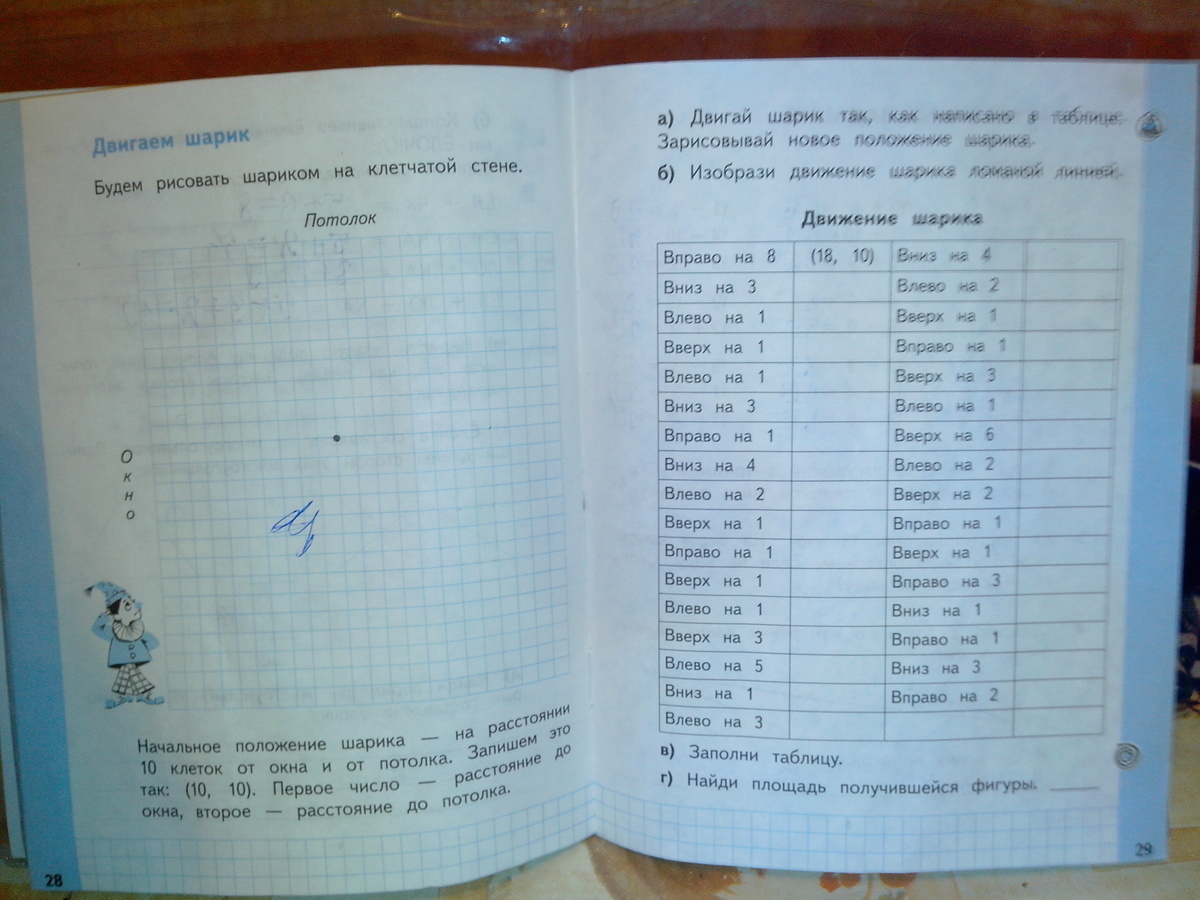 Двигаем шарик
Будем рисовать шариком на клетчатой стене.
Потолок
Окно
Начальное положение шарика — на расстоянии
10 клеток от окна и от потолка. Запишем это
так: (10, 10). Первое число — расстояние до
окна, второе — расстояние до потолка.
28
а) Двигай шарик так, как написано в таблице.
Зарисовывай новое положение шарика.
б) Изобрази движение шарика ломаной линией.
Движение шарика
Вправо на 8 (18, 10) Вниз на 4
Вниз на 3 Влево на 2
Влево на 1 Вверх на 1
Вверх на 1 Вправо на 1
Влево на 1 Вверх на 3
Вниз на 3 Влево на 1
Вправо на 1 Вверх на 6
Вниз на 4 Влево на 2
Влево на 2 Вверх на 2
Вверх на 1 Вправо на 1
Вправо на 1 Вверх на 1
Вверх на 1 Вправо на 3
Влево на 1 Вниз на 1
Вверх на 3 Вправо на 1
Влево на 5 Вниз на 3
Вниз на 1 Вправо на 2
Влево на 3
в) Заполни таблицу.
г) Найди площадь получившейся фигуры.
29